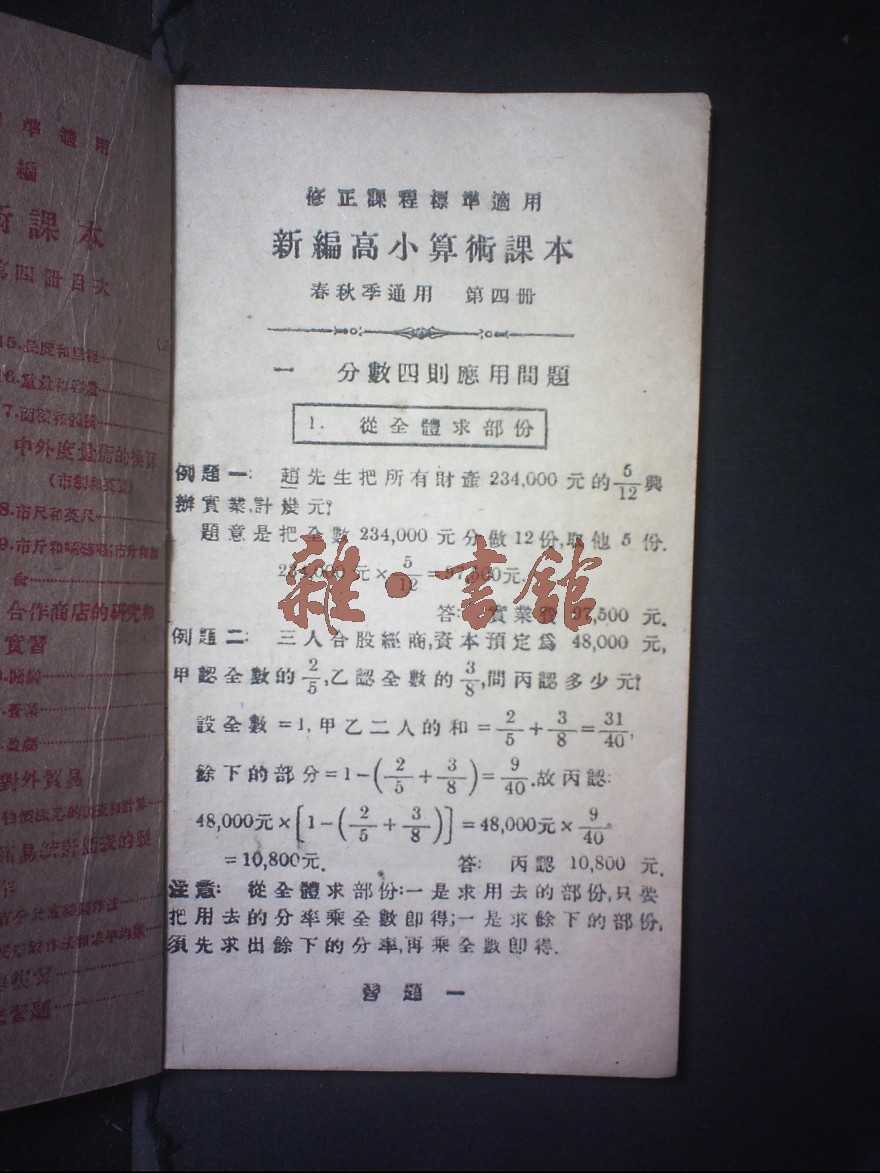 準適用
編
術課本
第四冊目次
15.長度和里程
16.重量和容量
17.面積和體積
中外度量衡的換算
(市制和英制)
8.市尺和英尺
合作商店的研究和
實習
對外貿易
總習題
修正課程標準適用
新編高小算術課本
春秋季通用 第四冊
一 分數四則應用問題
1. 從全體求部份
例題一: 趙先生把所有財產234,000元的5/12興
辦實業,計幾元?
題意是把全數234,000元分做12份,取他5份.
234,000元×5/12=97,500元.
答: 實業費97,500元.
例題二: 三人合股經商,資本預定爲48,000元,
甲認全數的2/5,乙認全數的3/8,問丙認多少元?
設全數=1,甲乙二人的和=2/5+3/8=31/40,
餘下的部分=1-(2/5+3/8)=9/40.故丙認:
48,000元×[1-(2/5+3/8)]=48,000元×9/40
=10,800元. 答: 丙認10,800元.
注意: 從全體求部份:一是求用去的部份,只要
把用去的分率乘全數即得;一是求餘下的部份,
須先求出餘下的分率,再乘全數即得.
習題一
雜·書館